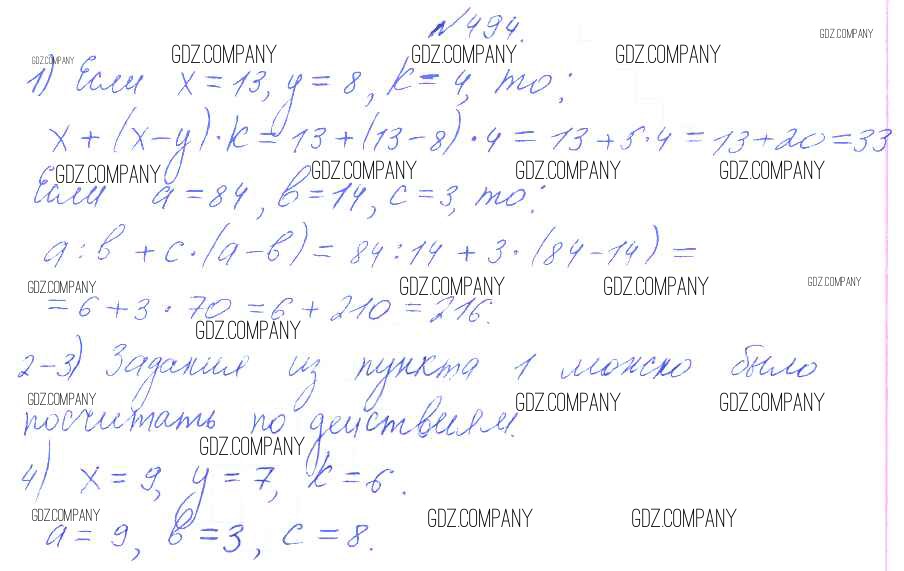 №494.
GDZ.COMPANY GDZ.COMPANY GDZ.COMPANY GDZ.COMPANY
GDZ.COMPANY
1) Если x = 13, y = 8, k = 4, то:
x + (x − y) · k = 13 + (13 − 8) · 4 = 13 + 5 · 4 = 13 + 20 = 33
GDZ.COMPANY GDZ.COMPANY GDZ.COMPANY GDZ.COMPANY
Если a = 84, b = 14, c = 3, то:
a : b + c · (a − b) = 84 : 14 + 3 · (84 − 14) =
GDZ.COMPANY GDZ.COMPANY GDZ.COMPANY GDZ.COMPANY
= 6 + 3 · 70 = 6 + 210 = 216.
GDZ.COMPANY
2-3) Задания из пункта 1 можно было
GDZ.COMPANY GDZ.COMPANY GDZ.COMPANY
посчитать по действиям.
GDZ.COMPANY
4) x = 9, y = 7, k = 6.
GDZ.COMPANY GDZ.COMPANY GDZ.COMPANY
a = 9, b = 3, c = 8.